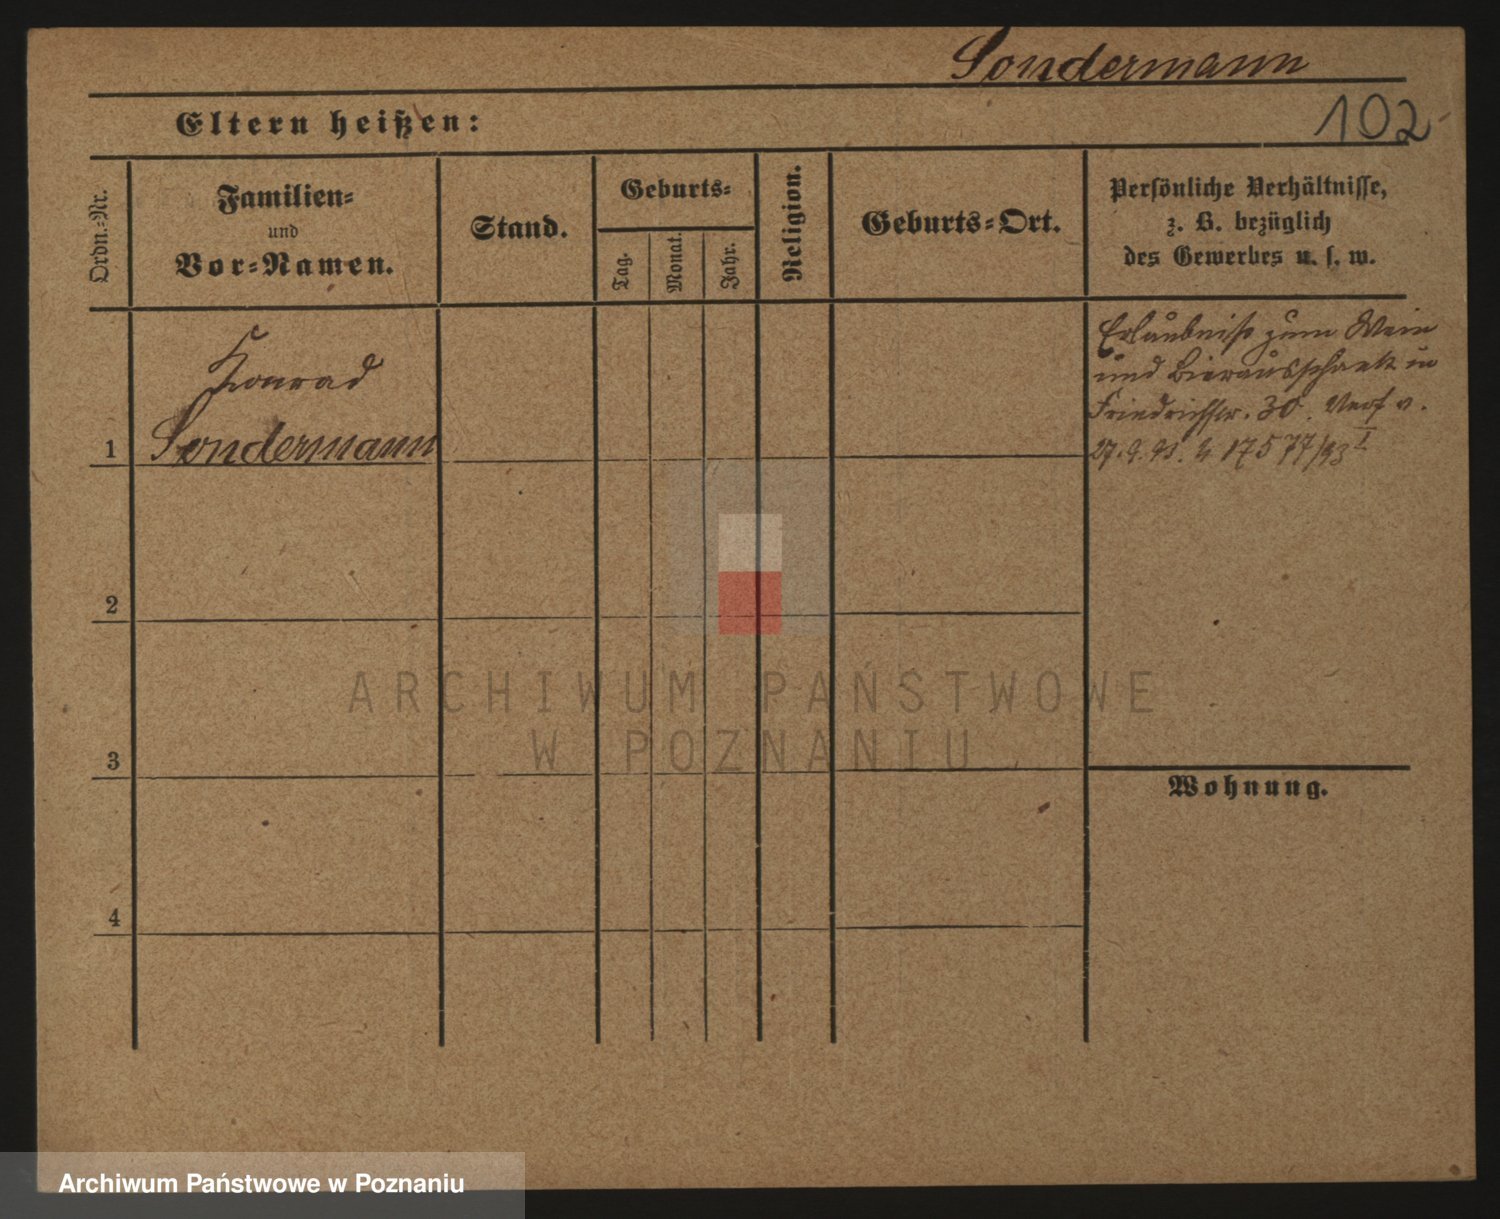 Sondermann
102
Eltern heißen:
Ordn.-Nr.
Familien-
und
Vor-Namen.
Stand.
Geburts-
Tag.
Monat.
Jahr.
Religion.
Geburts-Ort.
Persönliche Verhältnisse,
z. B. bezüglich
des Gewerbes u. s. w.
Konrad
Sondermann
1
Erlaubniß zum Wein
und Bierausschank in
Friedrichstr. 30. Verf v.
27. 9. 93. 17577/93 I
2
3
4
Wohnung.
ARCHIWUM PAŃSTWOWE
W POZNANIU
Archiwum Państwowe w Poznaniu